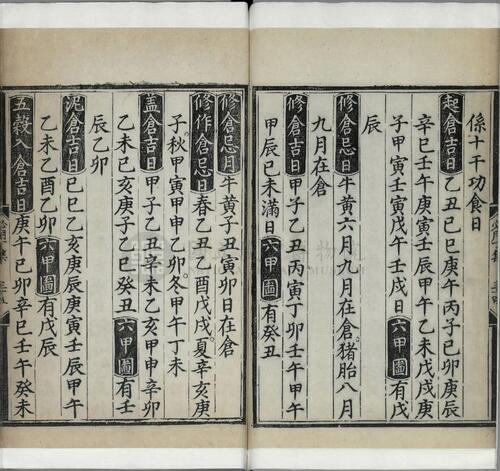 係十干功食日
起倉吉日乙丑己巳庚午丙子己卯庚辰
辛巳壬午庚寅壬辰甲午乙未戊戌庚
子甲寅壬寅庚戌壬戌日六甲圖有戊
辰
修倉忌日牛黃六月九月在倉猪胎八月
九月在倉
修倉吉日甲子乙丑丙寅丁卯壬午甲午
甲辰己未滿日六甲圖有癸丑
修倉忌月牛黃子丑寅卯日在倉
修作倉忌日春乙丑乙酉戊戌夏辛亥庚
子秋甲寅甲申乙卯冬甲午丁未
盖倉吉日甲子乙丑辛未乙亥甲申辛卯
乙未己亥庚子乙巳癸丑六甲圖有壬
辰乙卯
泥倉吉日己巳乙亥庚辰庚寅壬辰甲午
乙未乙酉乙卯六甲圖有戊辰
五穀入倉吉日庚午己卯辛巳壬午癸未